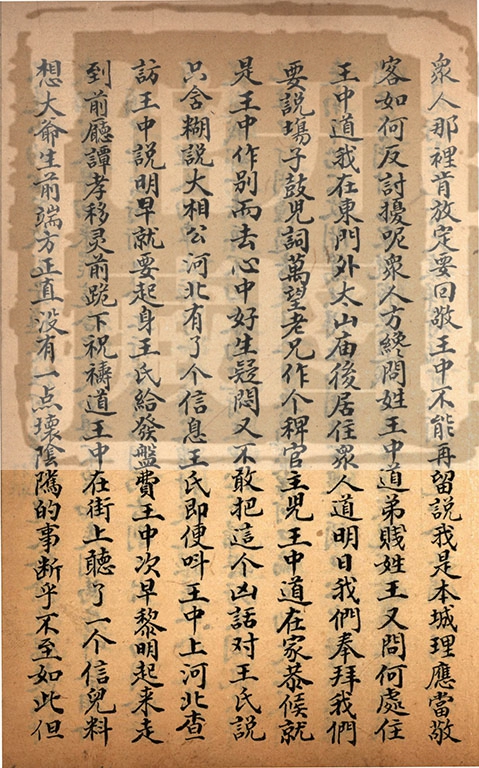 衆人那裡肯放定要回敬王中不能再留說我是本城理應當敬
客如何反討擾呢衆人方纔問姓王中道弟賤姓王又問何處住
王中道我在東門外太山庙後居住衆人道明日我們奉拜我們
要說塲子鼓児詞萬望老兄作个稗官主児王中道在家恭候就
是王中作别而去心中好生疑悶又不敢把這个凶話对王氏說
只含糊說大相公河北有了个信息王氏即便呌王中上河北查
訪王中說明早就要起身王氏給發盤費王中次早黎明起来走
到前廳譚孝移灵前跪下祝禱道王中在街上聽了一个信兒料
想大爺生前端方正直没有一点壊陰隲的事断乎不至如此但